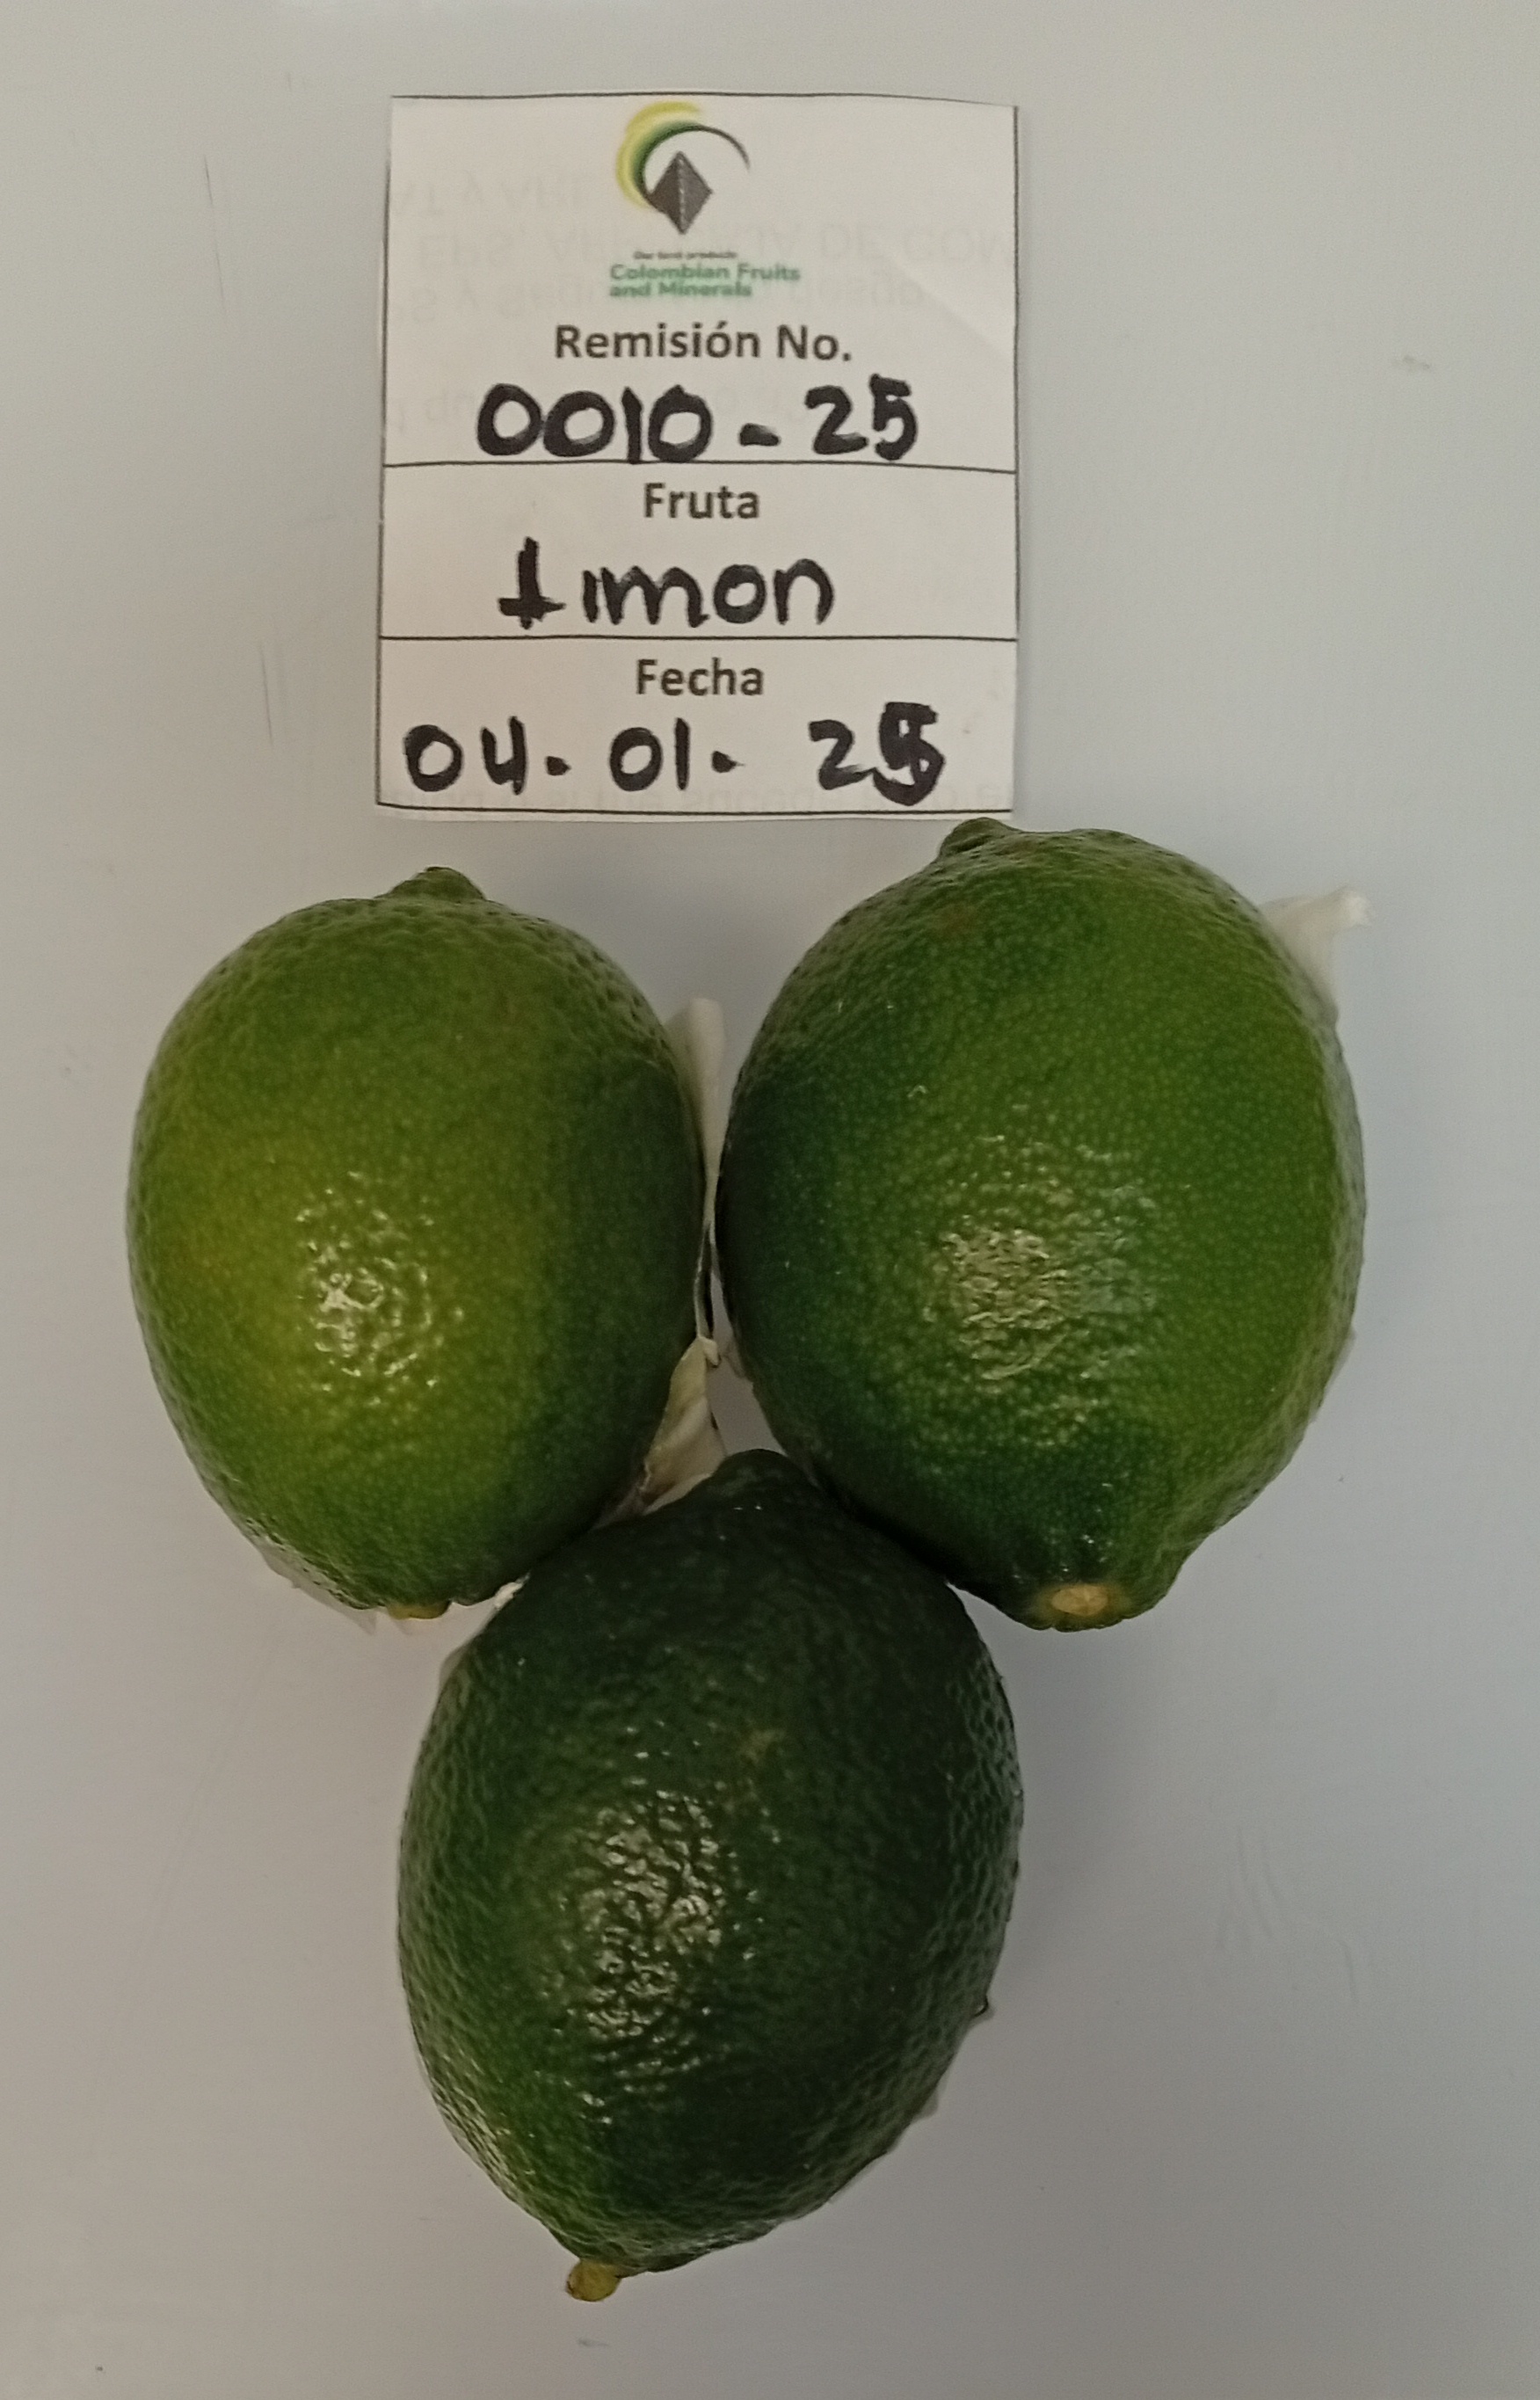 Our best products
Colombian Fruits
and Minerals
Remisión No.
0010-25
Fruta
Limon
Fecha
04.01.25